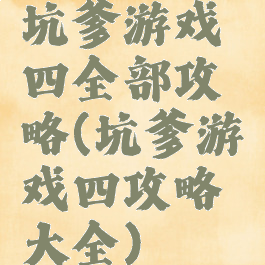 坑爹游戏
四全部攻
略(坑爹游
戏四攻略
大全)